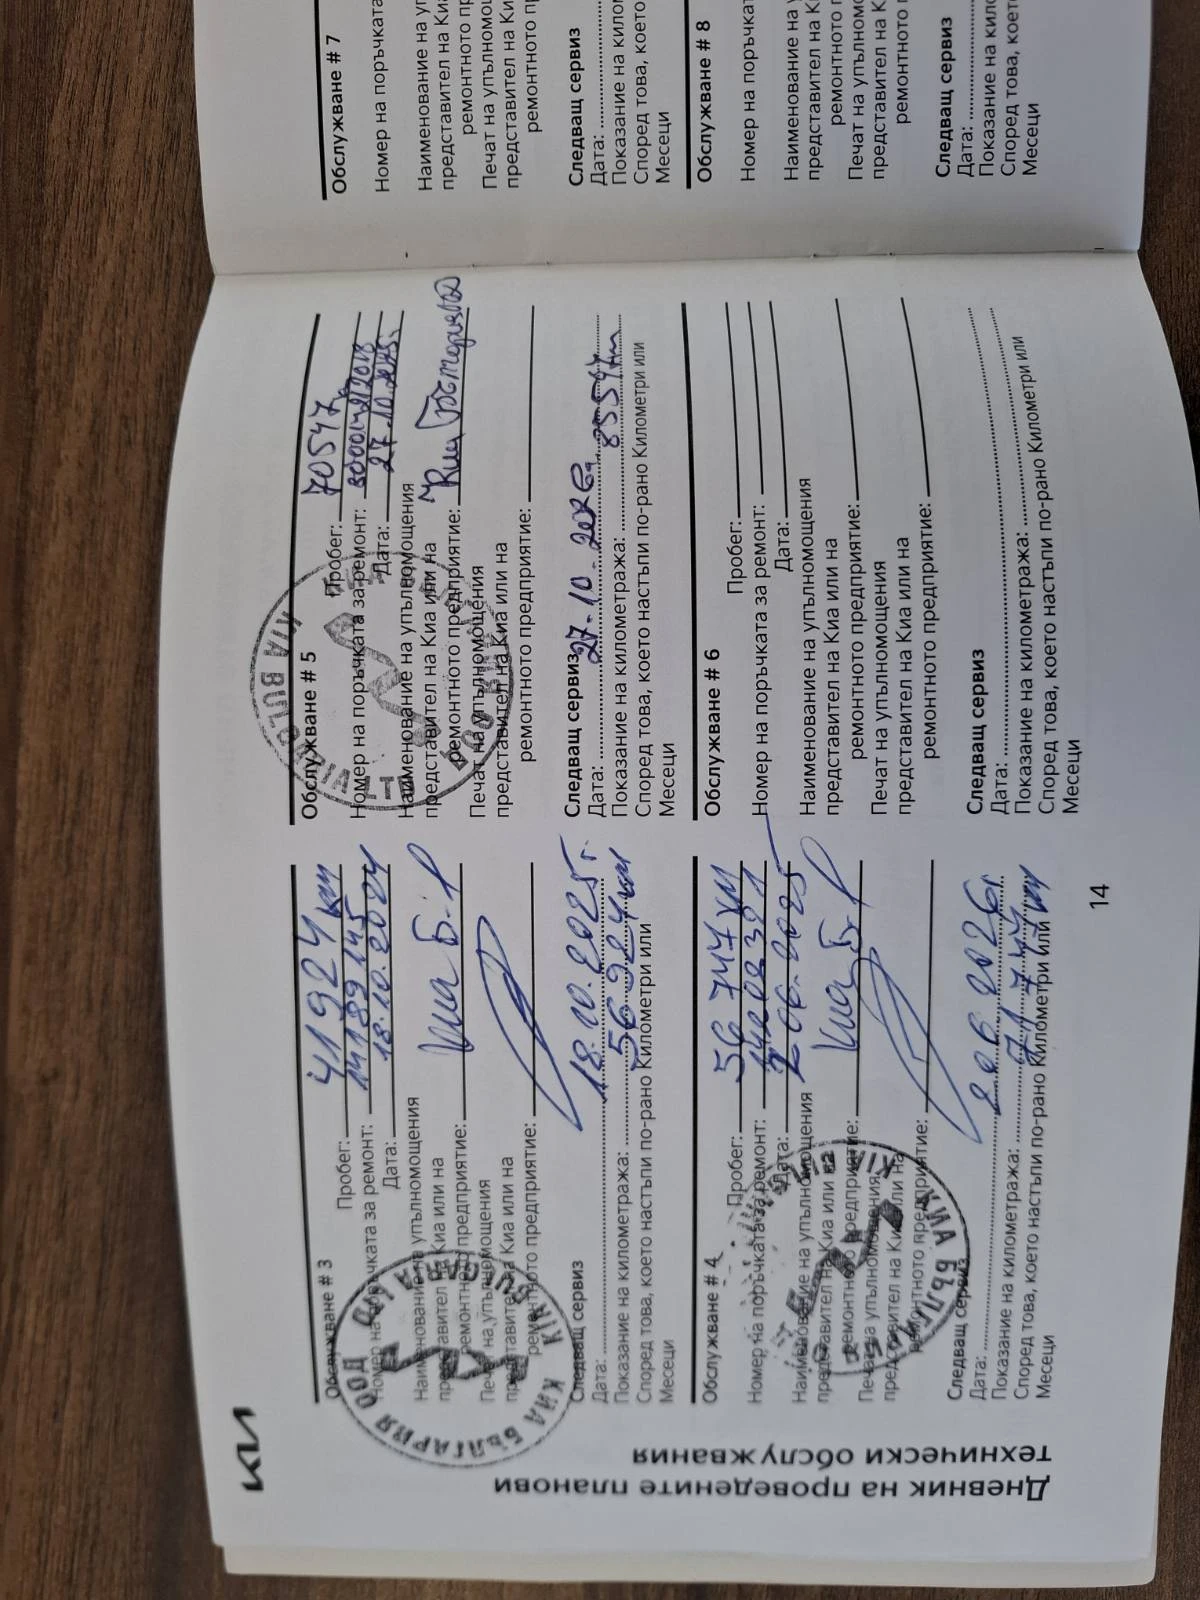 KIA
Дневник на проведените планови
технически обслужвания
Обслужване # 3
Пробег: 41924 км
Номер на поръчката за ремонт: 14189145
Дата: 18.10.2024
Наименование на упълномощения
представител на Киа или на
ремонтното предприятие: Киа Б-Я
Печат на упълномощения
представител на Киа или на
ремонтното предприятие:
КИА БЪЛГАРИЯ ООД
Следващ сервиз
Дата: 18.10.2025 г.
Показание на километража: 56924 км
Според това, което настъпи по-рано Километри или
Месеци
Обслужване # 4
Пробег: 56747 км
Номер на поръчката за ремонт:
Дата: 2.06.2025
Наименование на упълномощения
представител на Киа или на
ремонтното предприятие: Киа Б-Я
Печат на упълномощения
представител на Киа или на
ремонтното предприятие:
Следващ сервиз
Дата: 2.06.2026
Показание на километража: 71747 км
Според това, което настъпи по-рано Километри или
Месеци
Обслужване # 5
Пробег: 70547
Номер на поръчката за ремонт:
Дата: 27.10.2025
Наименование на упълномощения
представител на Киа или на
ремонтното предприятие: Киа България
Печат на упълномощения
представител на Киа или на
ремонтното предприятие:
KIA BULGARIA LTD
Следващ сервиз
Дата: 27.10.2026
Показание на километража: 85547 km
Според това, което настъпи по-рано Километри или
Месеци
Обслужване # 6
Пробег:
Номер на поръчката за ремонт:
Дата:
Наименование на упълномощения
представител на Киа или на
ремонтното предприятие:
Печат на упълномощения
представител на Киа или на
ремонтното предприятие:
Следващ сервиз
Дата:
Показание на километража:
Според това, което настъпи по-рано Километри или
Месеци
14
Обслужване # 7
Номер на поръчката
Наименование на
представител на
ремонтното
Печат на
представител на
ремонтното
Следващ сервиз
Дата:
Показание на
Според това, което
Месеци
Обслужване # 8
Номер на
Наименование на
представител на
ремонтното
Печат на
представител на
ремонтното
Следващ сервиз
Дата:
Показание на
Според това, което
Месеци